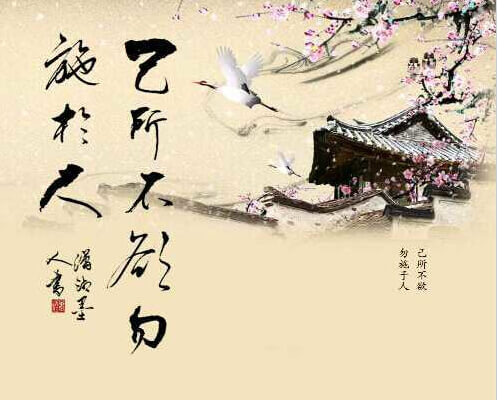 己所不欲勿
施於人
潇湘墨
人書
己所不欲
勿施于人